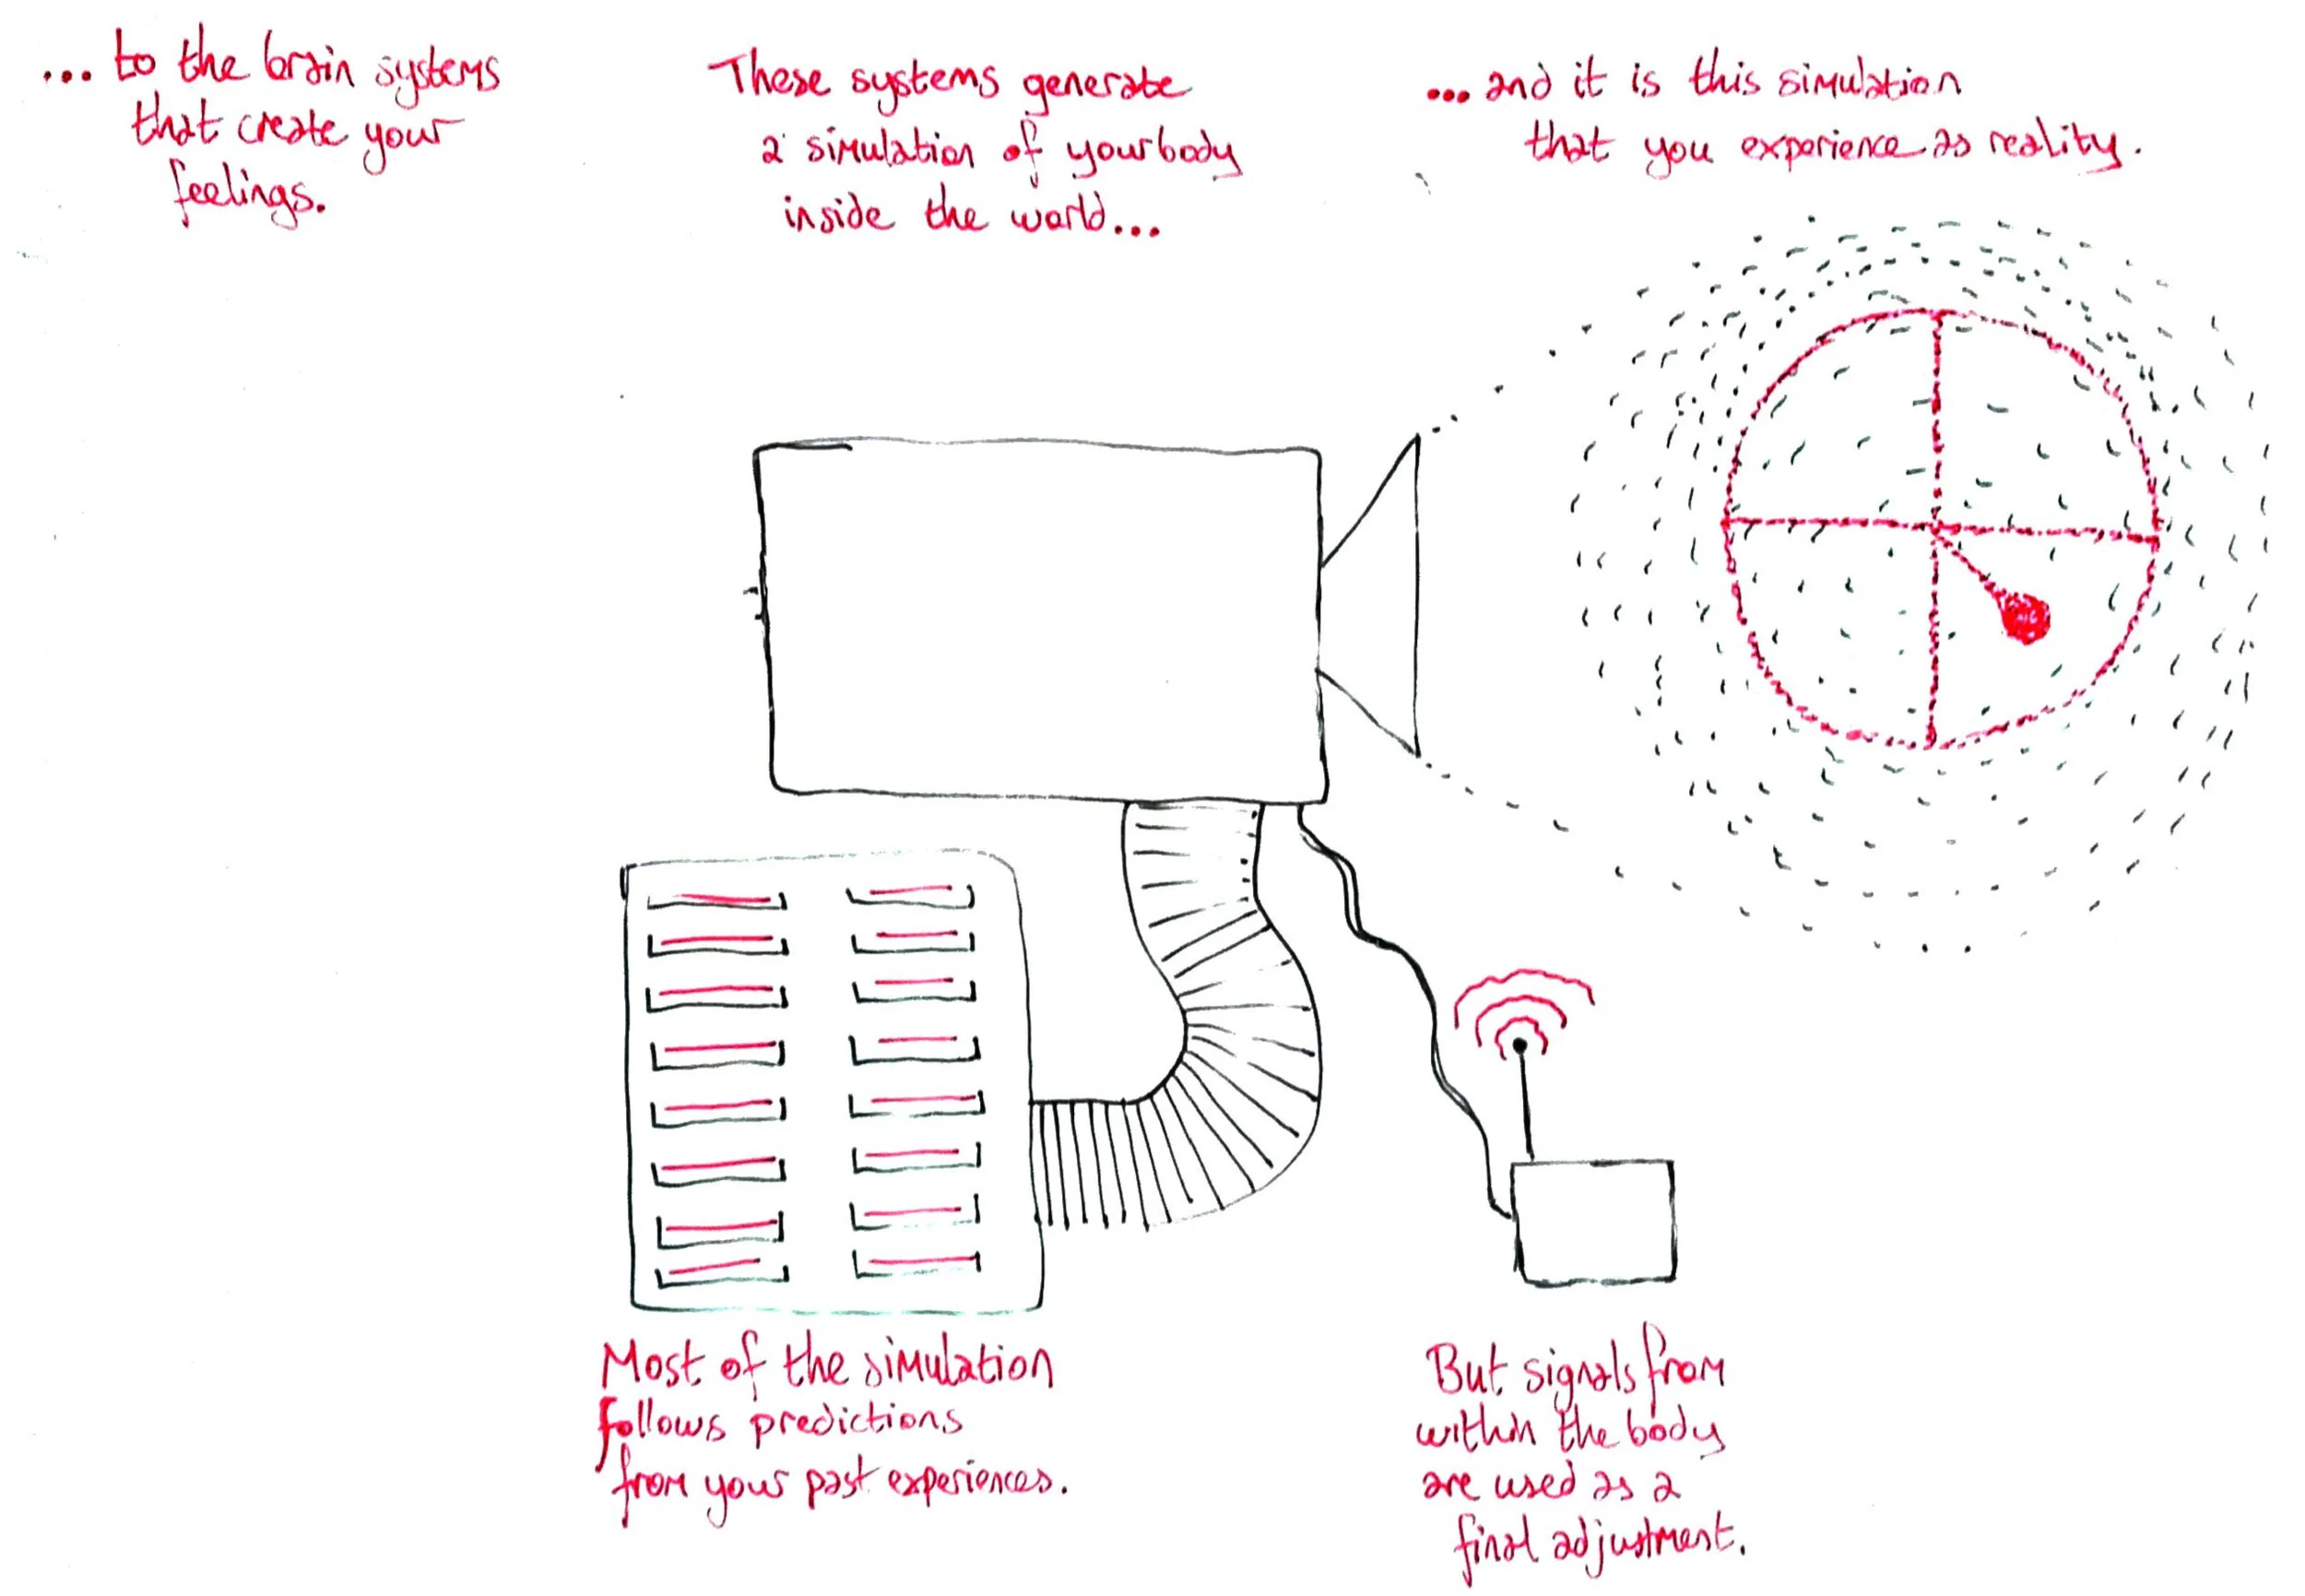 ... to the brain systems
that create your
feelings.
These systems generate
a simulation of your body
inside the world...
... and it is this simulation
that you experience as reality.
Most of the simulation
follows predictions
from your past experiences.
But signals from
within the body
are used as a
final adjustment.